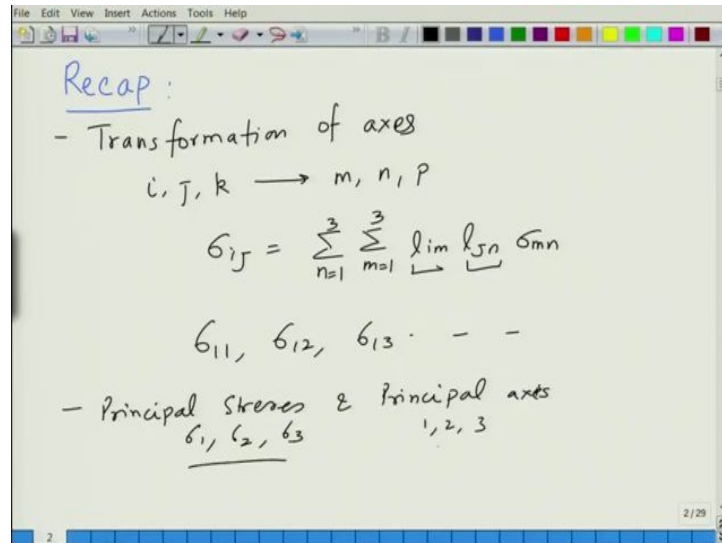 File Edit View Insert Actions Tools Help
B I
Recap :
- Transformation of axes
i, J, k → m, n, p
σiJ = 3∑n=1 3∑m=1 lim lJn σmn
σ11, σ12, σ13 - - -
- Principal Streses & Principal axes
σ1, σ2, σ3 1, 2, 3
2/29
2